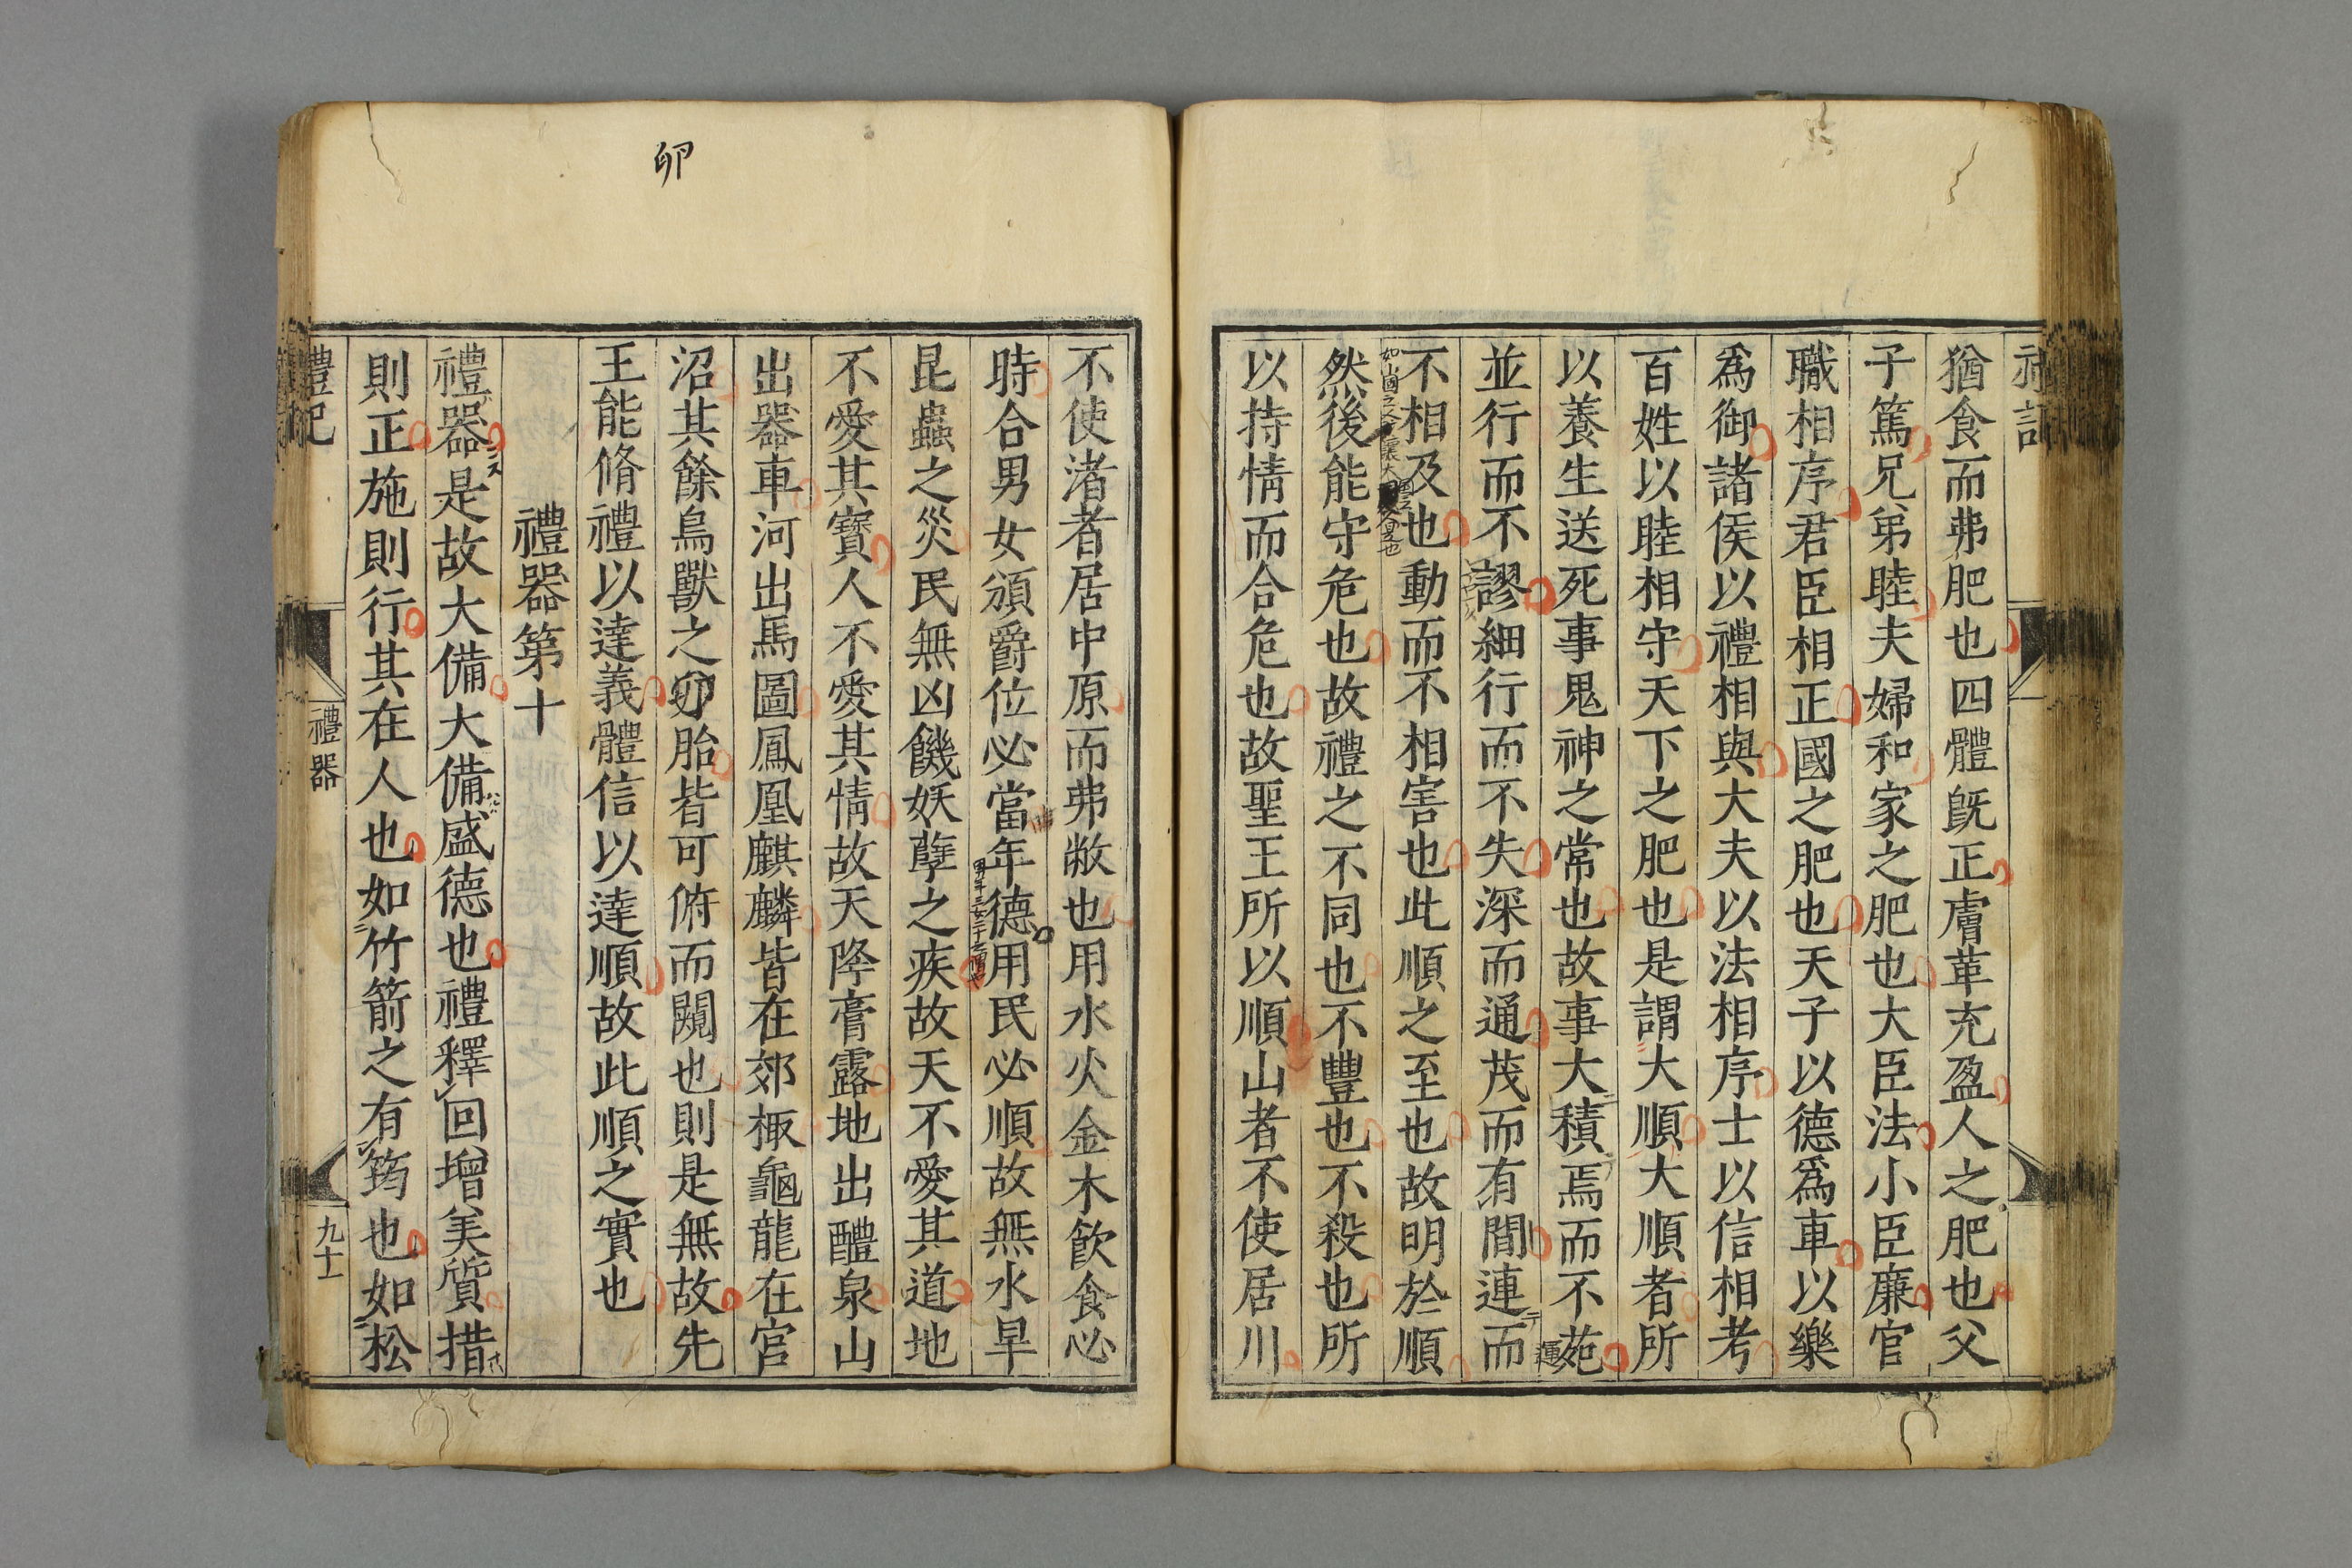 猶食而弗肥也四體旣正膚革充盈人之肥也父
子篤兄弟睦夫婦和家之肥也大臣法小臣廉官
職相序君臣相正國之肥也天子以德爲車以樂
爲御諸侯以禮相與大夫以法相序士以信相考
百姓以睦相守天下之肥也是謂大順大順者所
以養生送死事鬼神之常也故事大積焉而不苑
並行而不謬細行而不失深而通茂而有間連而
不相及也動而不相害也此順之至也故明於順
然後能守危也故禮之不同也不豐也不殺也所
以持情而合危也故聖王所以順山者不使居川
卯
不使渚者居中原而弗敝也用水火金木飲食必
時合男女頒爵位必當年德用民必順故無水旱
昆蟲之災民無凶饑妖孽之疾故天不愛其道地
不愛其寶人不愛其情故天降膏露地出醴泉山
出器車河出馬圖鳳凰麒麟皆在郊棷龜龍在宮
沼其餘鳥獸之卵胎皆可俯而闚也則是無故先
王能脩禮以達義體信以達順故此順之實也
禮器第十
禮器是故大備大備盛德也禮釋回增美質措
則正施則行其在人也如竹箭之有筠也如松
禮記
禮器
九十一